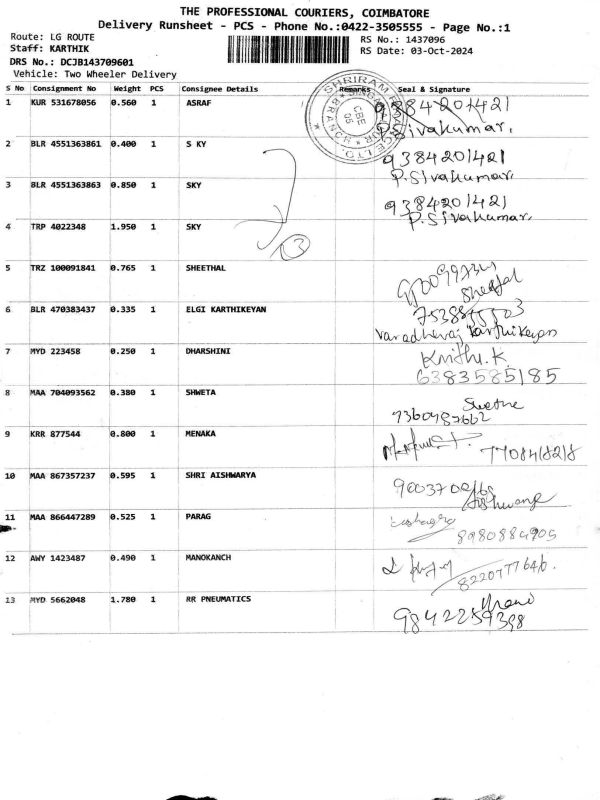 THE PROFESSIONAL COURIERS, COIMBATORE
Delivery Runsheet - PCS - Phone No.:0422-3505555 - Page No.:1
Route: LG ROUTE
Staff: KARTHIK
RS No.: 1437096
RS Date: 03-Oct-2024
DRS No.: DCJB143709601
Vehicle: Two Wheeler Delivery
S No Consignment No Weight PCS Consignee Details Remarks Seal & Signature
1 KUR 531678056 0.560 1 ASRAF 9384201421
P.Sivakumar.
2 BLR 4551363861 0.400 1 S KY 9384201421
P.Sivakumar.
3 BLR 4551363863 0.850 1 SKY 9384201421
P.Sivakumar.
4 TRP 4022348 1.950 1 SKY
5 TRZ 100091841 0.765 1 SHEETHAL
6 BLR 470383437 0.335 1 ELGI KARTHIKEYAN
Varadheraj Karthikeyan
7 MYD 223458 0.250 1 DHARSHINI Krithi.K
6383585185
8 MAA 704093562 0.380 1 SHWETA Swetha
9 KRR 877544 0.800 1 MENAKA
10 MAA 867357237 0.595 1 SHRI AISHWARYA
11 MAA 866447289 0.525 1 PARAG
8980884905
12 AWY 1423487 0.490 1 MANOKANCH
8220777646.
13 MYD 5662048 1.780 1 RR PNEUMATICS
9842259398